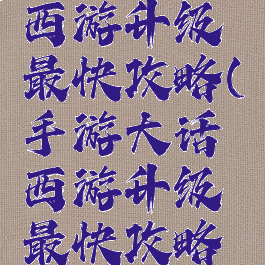 西游升级
最快攻略(
手游大话
西游升级
最快攻略